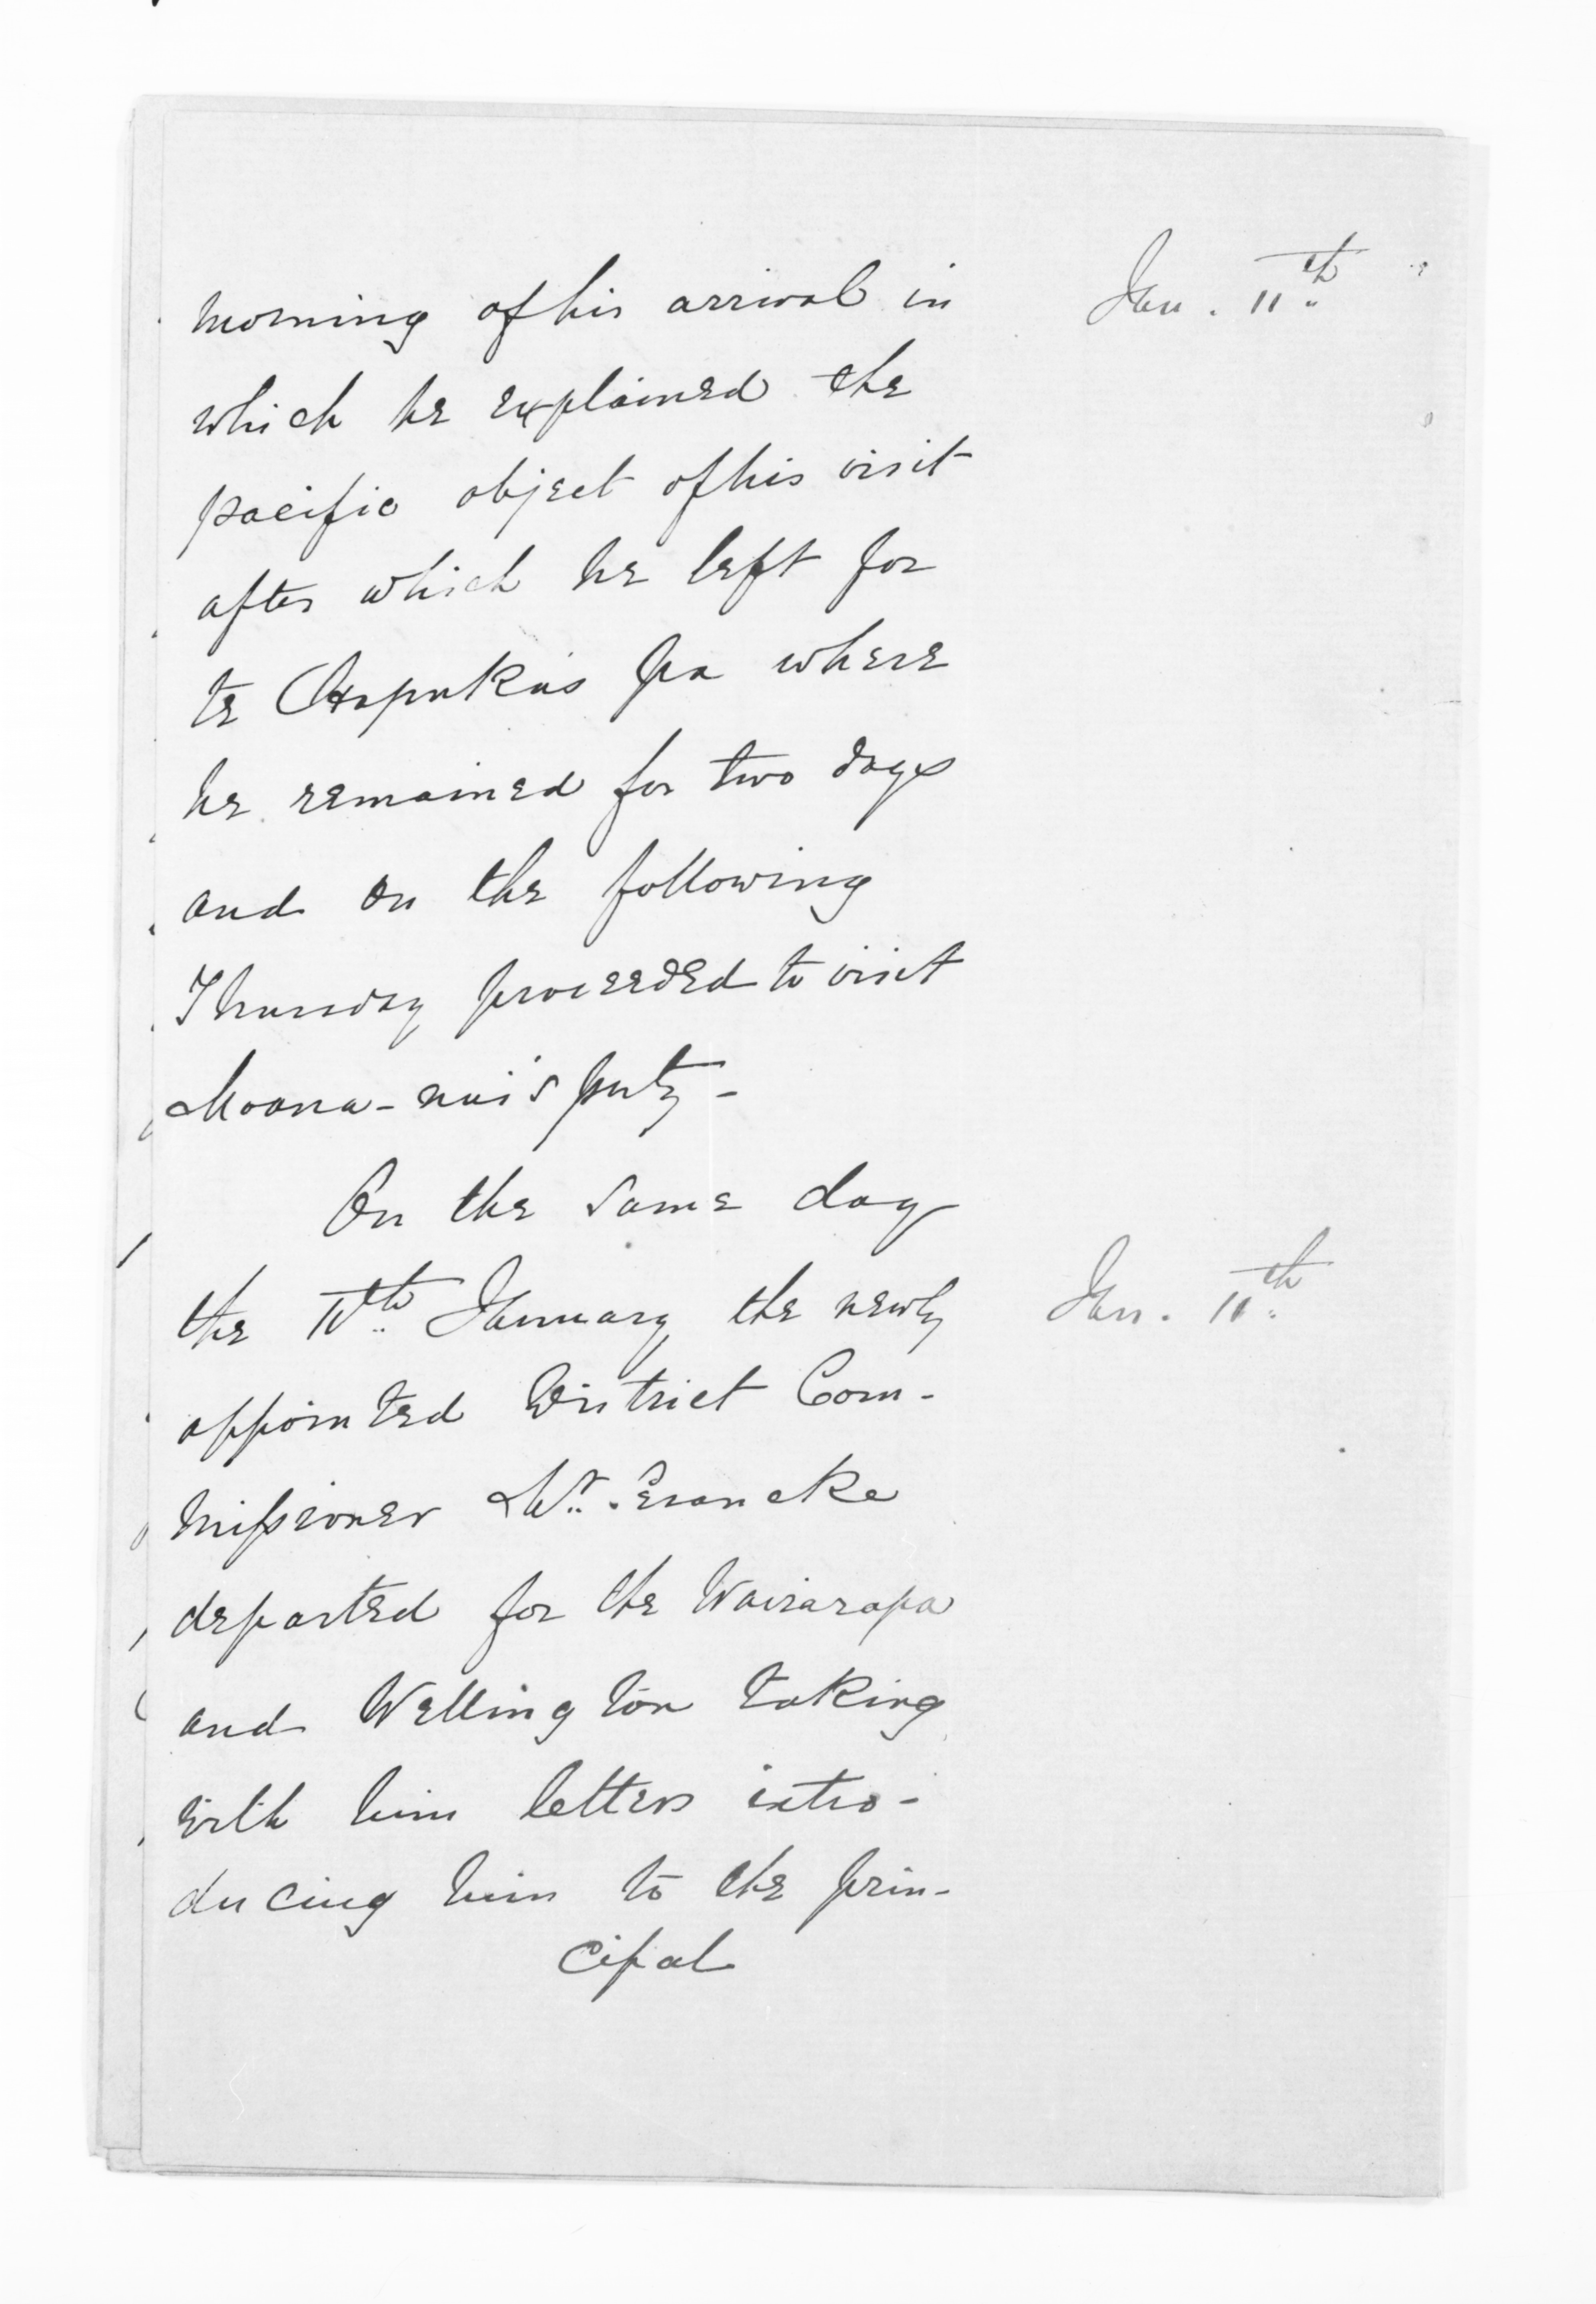 morning of his arrival in
Jan. 11th
which he explained the
pacific object of his visit
after which he left for
te Hapuku's pa where
he remained for two days
and on the following
Thursday proceeded to visit
Moana-nui's party -
On the same day
the 11th January the newly
Jan. 11th
appointed District Com-
missioner Mr.
departed for the Wairarapa
and Wellington taking
with him letters intro-
ducing him to the prin-
cipal